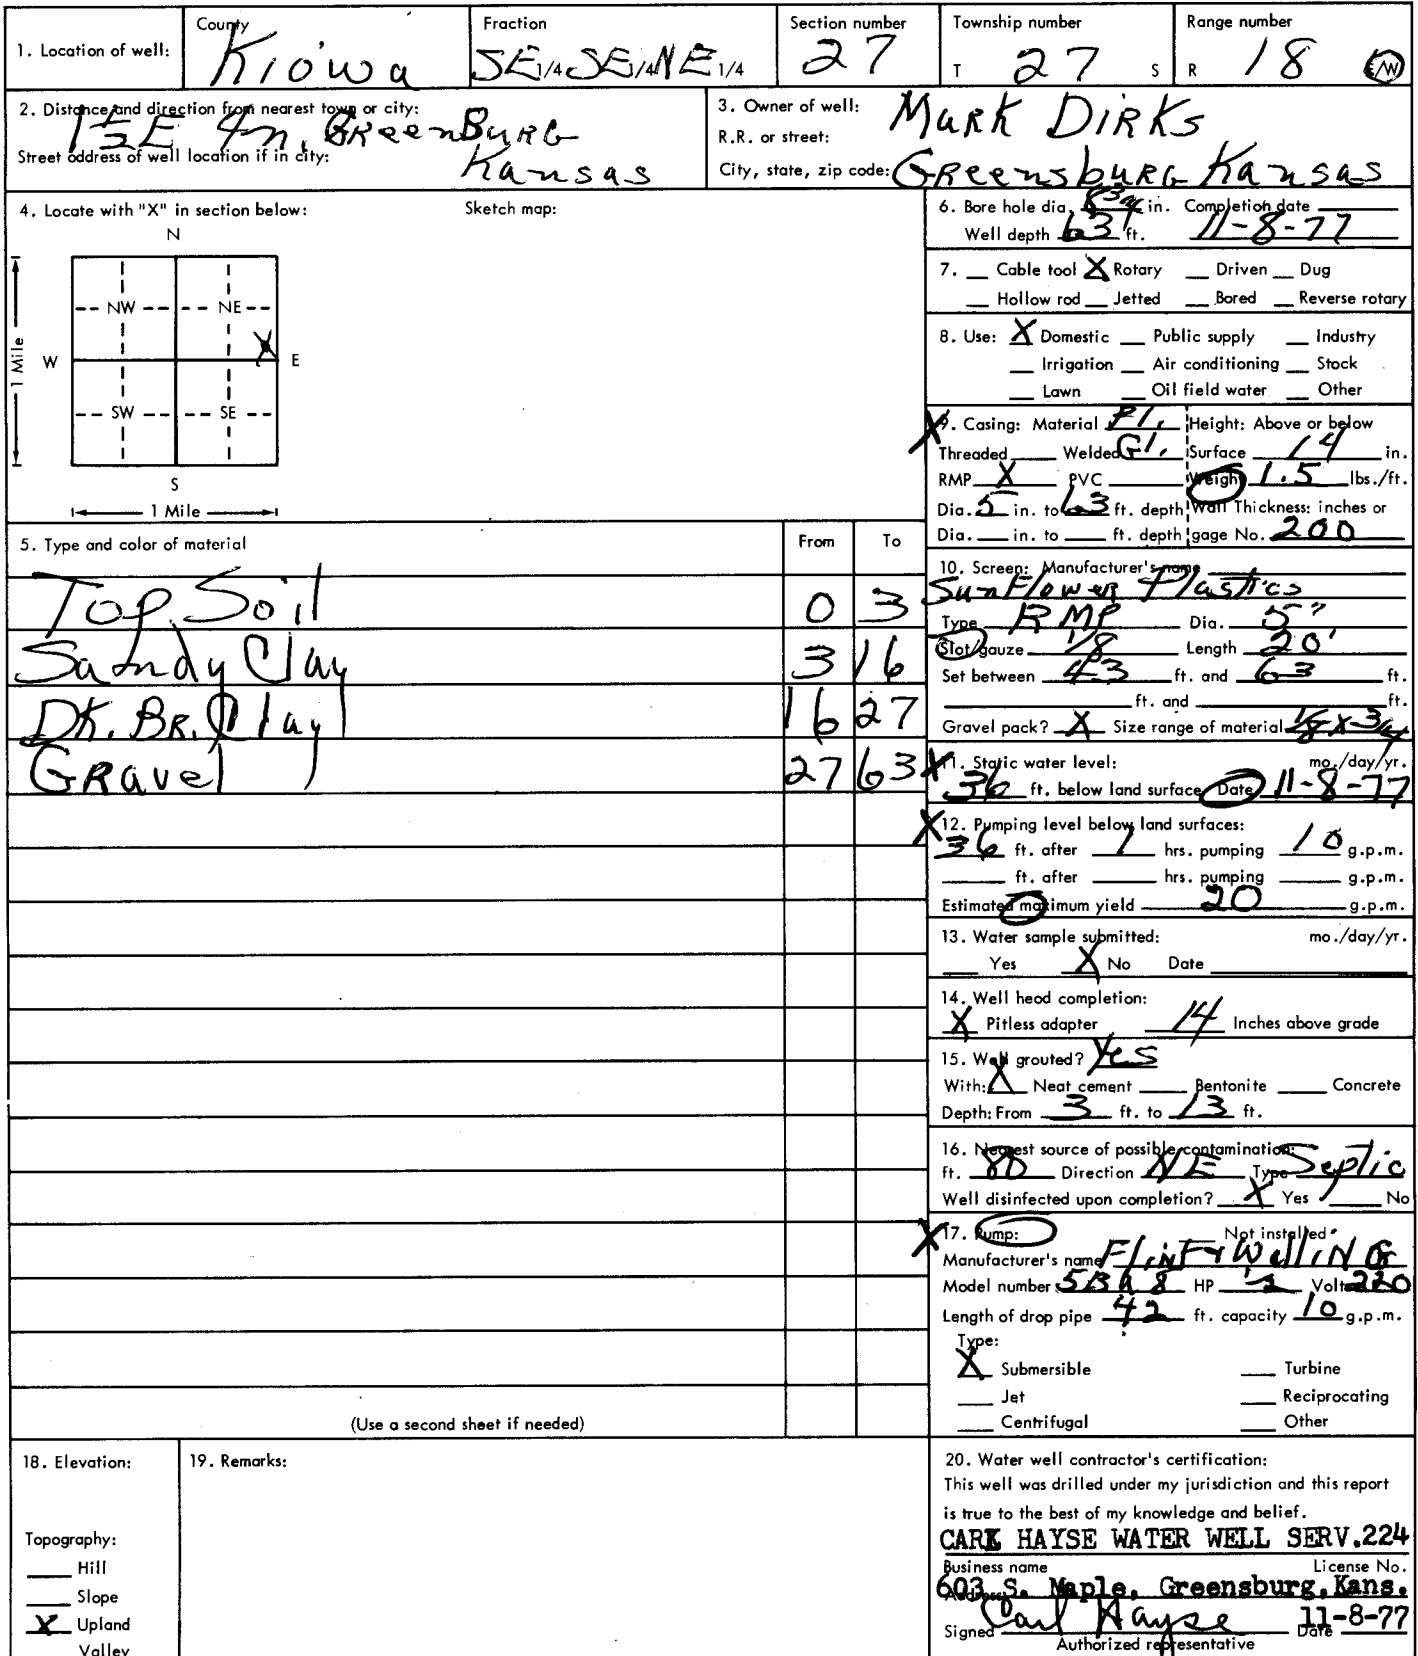 1. Location of well: County Kiowa Fraction SE 1/4 SE 1/4 NE 1/4 Section number 27 Township number T 27 S Range number R 18 E/W
2. Distance and direction from nearest town or city:
1½ E 4 n. GreenBurg
Street address of well location if in city: Kansas
3. Owner of well: Mark Dirks
R.R. or street:
City, state, zip code: Greensburg Kansas
4. Locate with "X" in section below: Sketch map:
N
NW NE
W E
SW SE
S
1 Mile
1 Mile
5. Type and color of material From To
Top Soil 0 3
Sandy Clay 3 16
DK. BR. Clay 16 27
Gravel 27 63
(Use a second sheet if needed)
6. Bore hole dia. 8 3/4 in. Completion date
Well depth 63 ft. 11-8-77
7. Cable tool X Rotary Driven Dug
Hollow rod Jetted Bored Reverse rotary
8. Use: X Domestic Public supply Industry
Irrigation Air conditioning Stock
Lawn Oil field water Other
X 9. Casing: Material Pl. Height: Above or below
Threaded Welded Gl. Surface 14 in.
RMP X PVC Weight 1.5 lbs./ft.
Dia. 5 in. to 63 ft. depth Wall Thickness: inches or
Dia. in. to ft. depth gage No. 200
10. Screen: Manufacturer's name
SunFlower Plastics
Type RMP Dia. 5"
Slot/gauze 1/8 Length 20'
Set between 43 ft. and 63 ft.
ft. and ft.
Gravel pack? X Size range of material 1/8 x 3/4
X 11. Static water level: mo./day/yr.
36 ft. below land surface Date 11-8-77
X 12. Pumping level below land surfaces:
36 ft. after 1 hrs. pumping 10 g.p.m.
ft. after hrs. pumping g.p.m.
Estimated maximum yield 20 g.p.m.
13. Water sample submitted: mo./day/yr.
Yes X No Date
14. Well head completion:
X Pitless adapter 14 Inches above grade
15. Well grouted? Yes
With: X Neat cement Bentonite Concrete
Depth: From 3 ft. to 13 ft.
16. Nearest source of possible contamination:
ft. 80 Direction NE Type Septic
Well disinfected upon completion? X Yes No
X 17. Pump: Not installed
Manufacturer's name Flint & WalliNG
Model number 5BA8 HP 1/2 Volt 220
Length of drop pipe 42 ft. capacity 10 g.p.m.
Type:
X Submersible Turbine
Jet Reciprocating
Centrifugal Other
18. Elevation:
Topography:
Hill
Slope
X Upland
Valley
19. Remarks:
20. Water well contractor's certification:
This well was drilled under my jurisdiction and this report
is true to the best of my knowledge and belief.
CARL HAYSE WATER WELL SERV. 224
Business name License No.
603 S. Maple, Greensburg, Kans.
Address
Signed Carl Hayse Date 11-8-77
Authorized representative